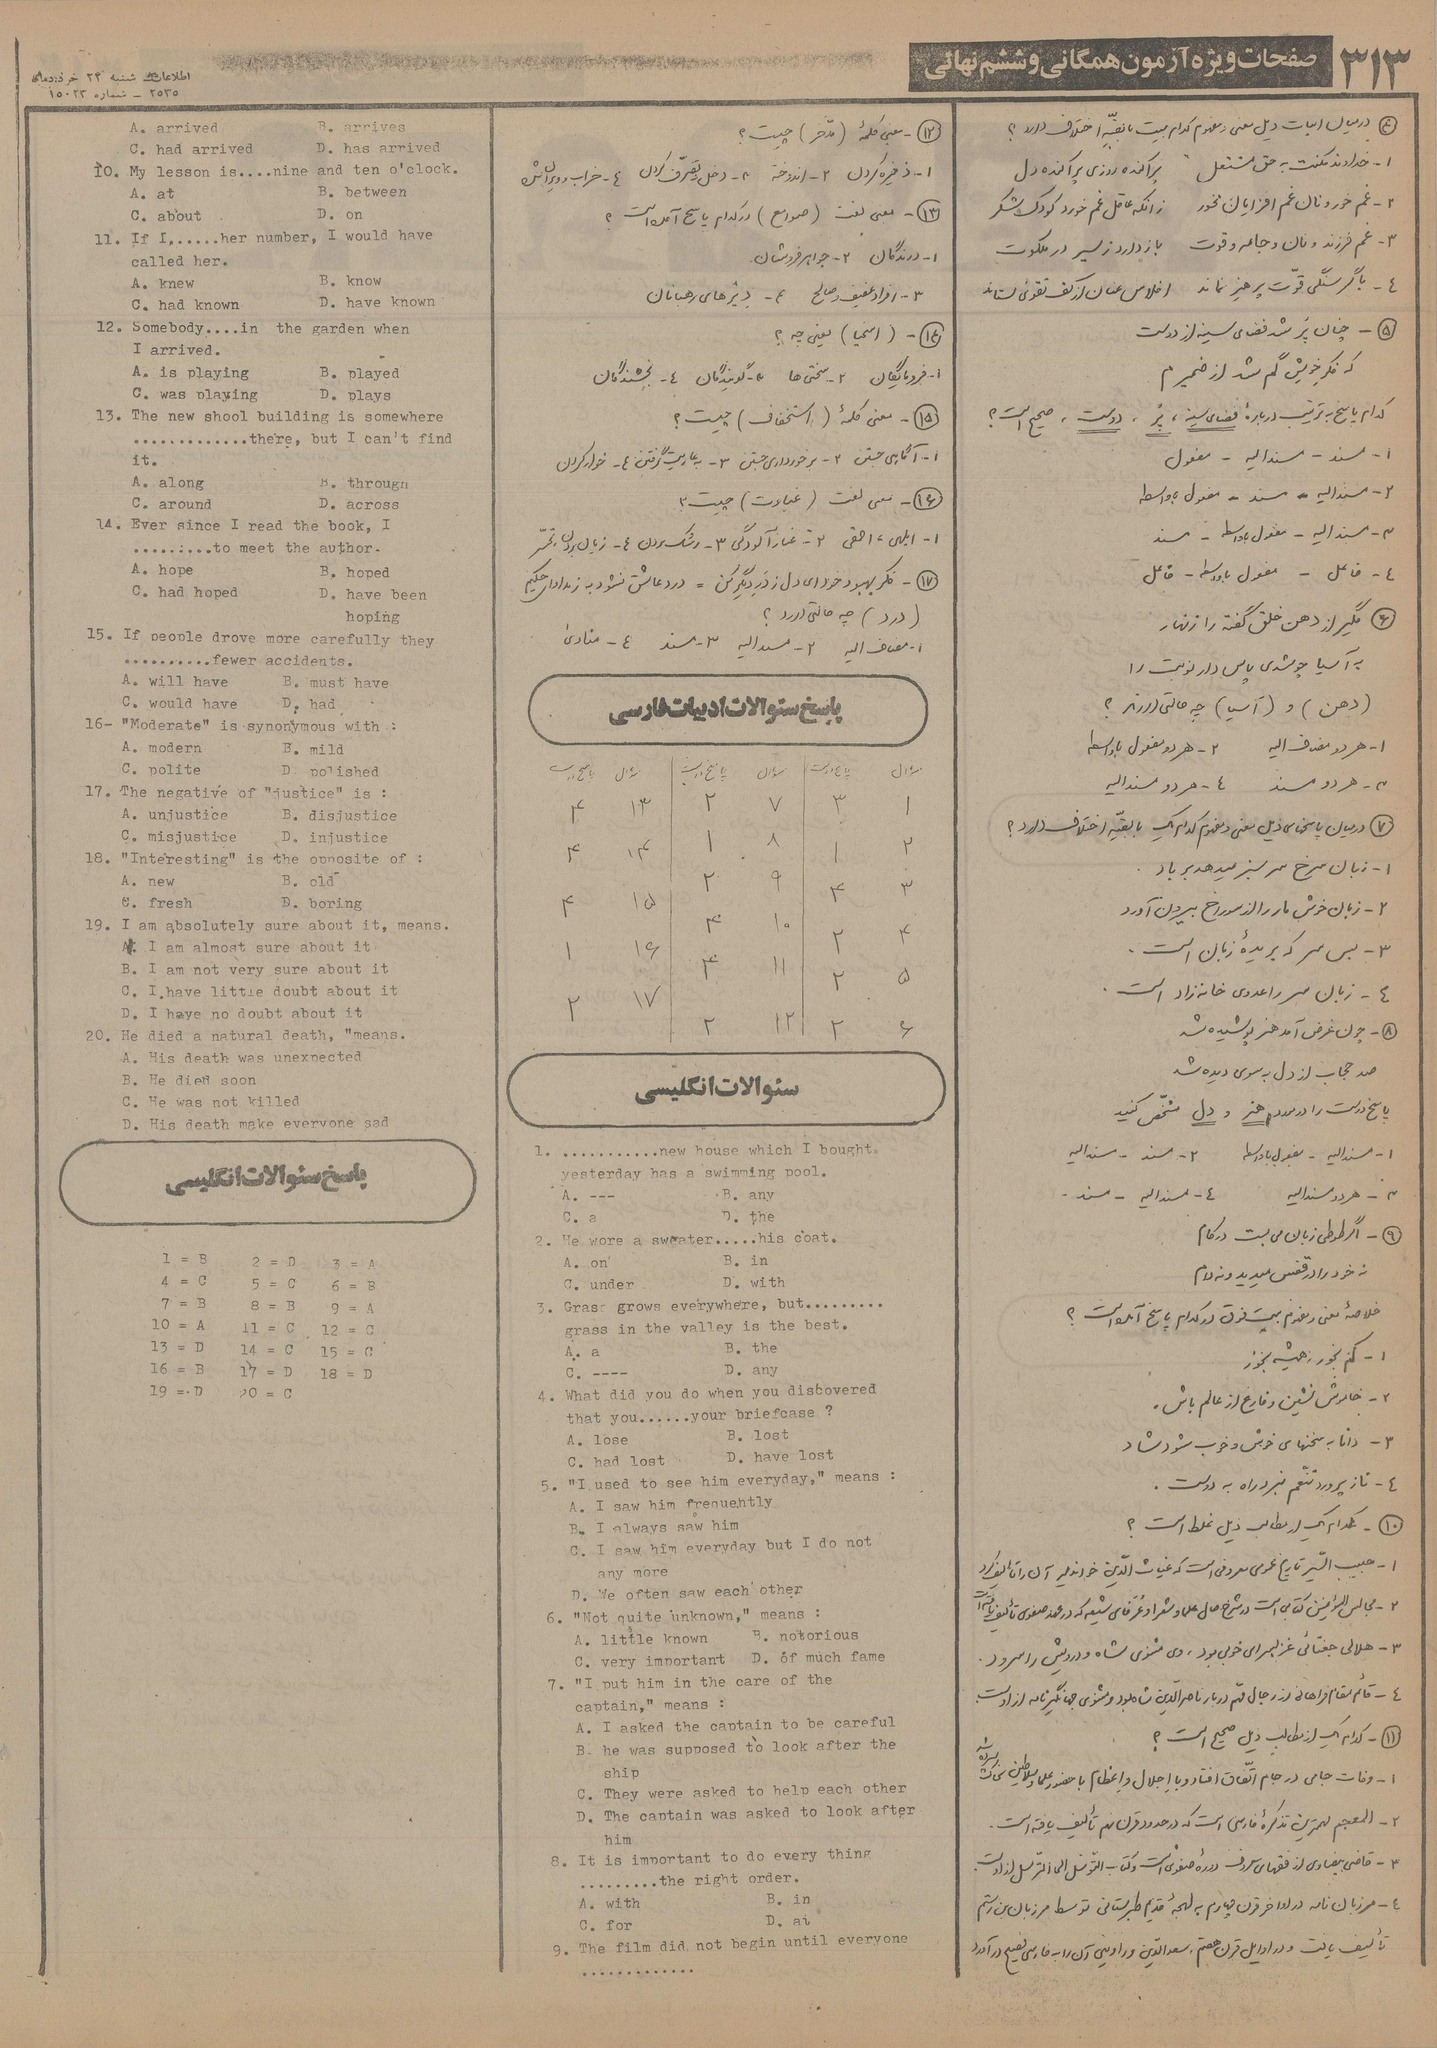 ۳۱۳
صفحات ویژه آزمون همگانی و ششم نهائی
اطلاعات شنبه ۲۴ خردادماه
۲۵۳۵ - شماره ۱۵۰۲۳
۴ در میان ابیات ذیل معنی و مفهوم کدام بیت با بقیّه اختلاف دارد ؟
۱- خداوند مکنت به حق مشتغل پراکنده روزی پراکنده دل
۲- غم خور و نان غم افزایان مخور زانکه عاقل غم خورد کودک شکر
۳- غم فرزند و نان و جامه و قوت باز دارد ز سیر در ملکوت
٤- با گرسنگی قوّت پرهیز نماند افلاس عنان از کف تقوی ستاند
۵ - چنان پر شد فضای سینه از دوست
که فکر خویش گم شد از ضمیرم
کدام پاسخ به ترتیب درباره فضای سینه ، پُر ، دوست ، صحیح است ؟
۱- مسند - مسندالیه - مفعول
۲- مسندالیه - مسند - مفعول باواسطه
۳- مسندالیه - مفعول باواسطه - مسند
٤- فاعل - مفعول باواسطه - فاعل
۶ مگیر از دهن خلق گفته را زنهار
به آسیا چو شدی پاس دار نوبت را
(دهن) و (آسیا) چه حالتی دارند ؟
۱- هر دو مضاف الیه ۲- هر دو مفعول باواسطه
۳- هر دو مسند ٤- هر دو مسندالیه
۷ در میان پاسخهای ذیل معنی و مفهوم کدام یک با بقیّه اختلاف دارد ؟
۱- زبان سرخ سر سبز میدهد بر باد .
۲- زبان خوش مار را از سوراخ بیرون آورد
۳- بس سر که بریدهٔ زبان است .
٤- زبان سر را عدوی خانه زاد است .
۸- چون غرض آمد هنر پوشیده شد
صد حجاب از دل به سوی دیده شد
پاسخ درست را در مورد هنر و دل مشخّص کنید
۱- مسندالیه - مفعول باواسطه ۲- مسند - مسندالیه
۳- هر دو مسندالیه ٤- مسندالیه - مسند .
۹- اگر طوطی زبان می بست در کام
نه خود را در قفس میدید و نه دام
خلاصهٔ معنی و مفهوم بیت فوق در کدام پاسخ آمده است ؟
۱- کم بخور ، همیشه بخور
۲- خاموش نشین و فارغ از عالم باش .
۳- دانا به سخنهای خوش و خوب شود شاد
٤- نازپرورد تنعّم نبرد راه به دوست .
۱۰- کدام یک از مطالب ذیل غلط است ؟
۱- حبیب السّیر تاریخ عمومی معروفی است که غیاث الدّین خواندمیر آن را تألیف کرد
۲- مجالس المؤمنین کتابی است در شرح حال علما و شعرا و عُرَفای شیعه که در عهد صفوی تألیف یافته است
۳- هلالی جغتائی غزلسرای خوبی بود ، وی مثنوی شاه و درویش را سرود .
٤- قائم مقام فراهانی از رجال مهّم دربار ناصرالدّین شاه بود و مثنوی جهانگیرنامه از اوست .
۱۱- کدام یک از مطالب ذیل صحیح است ؟
۱- وفات جامی در جام اتّفاق افتاد و با اِجلال و اِعظام با حضور علما و سلاطین
۲- المعجم مهمترین تذکرهٔ فارسی است که در حدود قرن نهم تألیف یافته است .
۳- قاضی بیضاوی از فقهای معروف دورهٔ صفوی است و کتاب التّوسّل الی التّرسّل از اوست .
٤- مرزبان نامه در اواخر قرن چهارم به لهجهٔ قدیم طبرستانی توسط مرزبان بن رستم
تألیف یافت و در اوایل قرن هفتم ، سعدالدّین وراوینی آن را به فارسی فصیح درآورد
۱۲- معنی کلمهٔ (مدّخر) چیست ؟
۱- ذخیره کردن ۲- اندوخته ۳- دخل و تصّرف کردن ٤- خراب و ویران
۱۳- معنی لغت (صوامع) در کدام پاسخ آمده است ؟
۱- درندگان ۲- جواهر فروشان
۳- افراد عفیف و صالح ٤- دیرهای رهبانان
۱٤- (اسخیا) یعنی چه ؟
۱- فرومایگان ۲- سختی ها ۳- گویندگان ٤- بخشندگان
۱۵- معنی کلمهٔ (استخفاف) چیست ؟
۱- آگاهی جستن ۲- برخورداری جستن ۳- به عاریت گرفتن ٤- خوار کردن
۱۶- معنی لغت (غباوت) چیست ؟
۱- ابلهی ، احمقی ۲- غبارآلودگی ۳- رشک بردن ٤- زیان بردن ،
۱۷- فکر بهبود خود ای دل ز دَرِ دیگر کن = درد عاشق نشود به ز مداوای حکیم
(درد) چه حالتی دارد ؟
۱- مضاف الیه ۲- مسندالیه ۳- مسند ٤- منادیٰ
پاسخ سئوالات ادبیات فارسی
سؤال پاسخ درست سؤال پاسخ درست سؤال پاسخ درست
۱ ۳ ۷ ۲ ۱۳ ۴
۲ ۱ ۸ ۱ ۱۴ ۴
۳ ۴ ۹ ۲ ۱۵ ۴
۴ ۲ ۱۰ ۴ ۱۶ ۱
۵ ۲ ۱۱ ۴ ۱۷ ۲
۶ ۲ ۱۲ ۲
سئوالات انگلیسی
1. ...........new house which I bought
yesterday has a swimming pool.
A. --- B. any
C. a D. the
2. He wore a sweater.....his coat.
A. on B. in
C. under D. with
3. Grass grows everywhere, but.........
grass in the valley is the best.
A. a B. the
C. ---- D. any
4. What did you do when you disbovered
that you......your briefcase ?
A. lose B. lost
C. had lost D. have lost
5. "I used to see him everyday," means :
A. I saw him frequently
B. I always saw him
C. I saw him everyday but I do not
any more
D. We often saw each other
6. "Not quite unknown," means :
A. little known B. notorious
C. very important D. of much fame
7. "I put him in the care of the
captain," means :
A. I asked the captain to be careful
B. he was supposed to look after the
ship
C. They were asked to help each other
D. The captain was asked to look after
him
8. It is important to do every thing
.........the right order.
A. with B. in
C. for D. at
9. The film did not begin until everyone
.............
A. arrived B. arrives
C. had arrived D. has arrived
10. My lesson is....nine and ten o'clock.
A. at B. between
C. about D. on
11. If I,.....her number, I would have
called her.
A. knew B. know
C. had known D. have known
12. Somebody....in the garden when
I arrived.
A. is playing B. played
C. was playing D. plays
13. The new shool building is somewhere
.............there, but I can't find
it.
A. along B. through
C. around D. across
14. Ever since I read the book, I
.........to meet the author.
A. hope B. hoped
C. had hoped D. have been
hoping
15. If people drove more carefully they
..........fewer accidents.
A. will have B. must have
C. would have D. had
16- "Moderate" is synonymous with :
A. modern B. mild
C. polite D. polished
17. The negative of "justice" is :
A. unjustice B. disjustice
C. misjustice D. injustice
18. "Interesting" is the opposite of :
A. new B. old
C. fresh D. boring
19. I am absolutely sure about it, means.
A. I am almost sure about it
B. I am not very sure about it
C. I have little doubt about it
D. I have no doubt about it
20. He died a natural death, "means.
A. His death was unexpected
B. He died soon
C. He was not killed
D. His death make everyone sad
پاسخ سئوالات انگلیسی
1 = B 2 = D 3 = A
4 = C 5 = C 6 = B
7 = B 8 = B 9 = A
10 = A 11 = C 12 = C
13 = D 14 = C 15 = C
16 = B 17 = D 18 = D
19 = D 20 = C